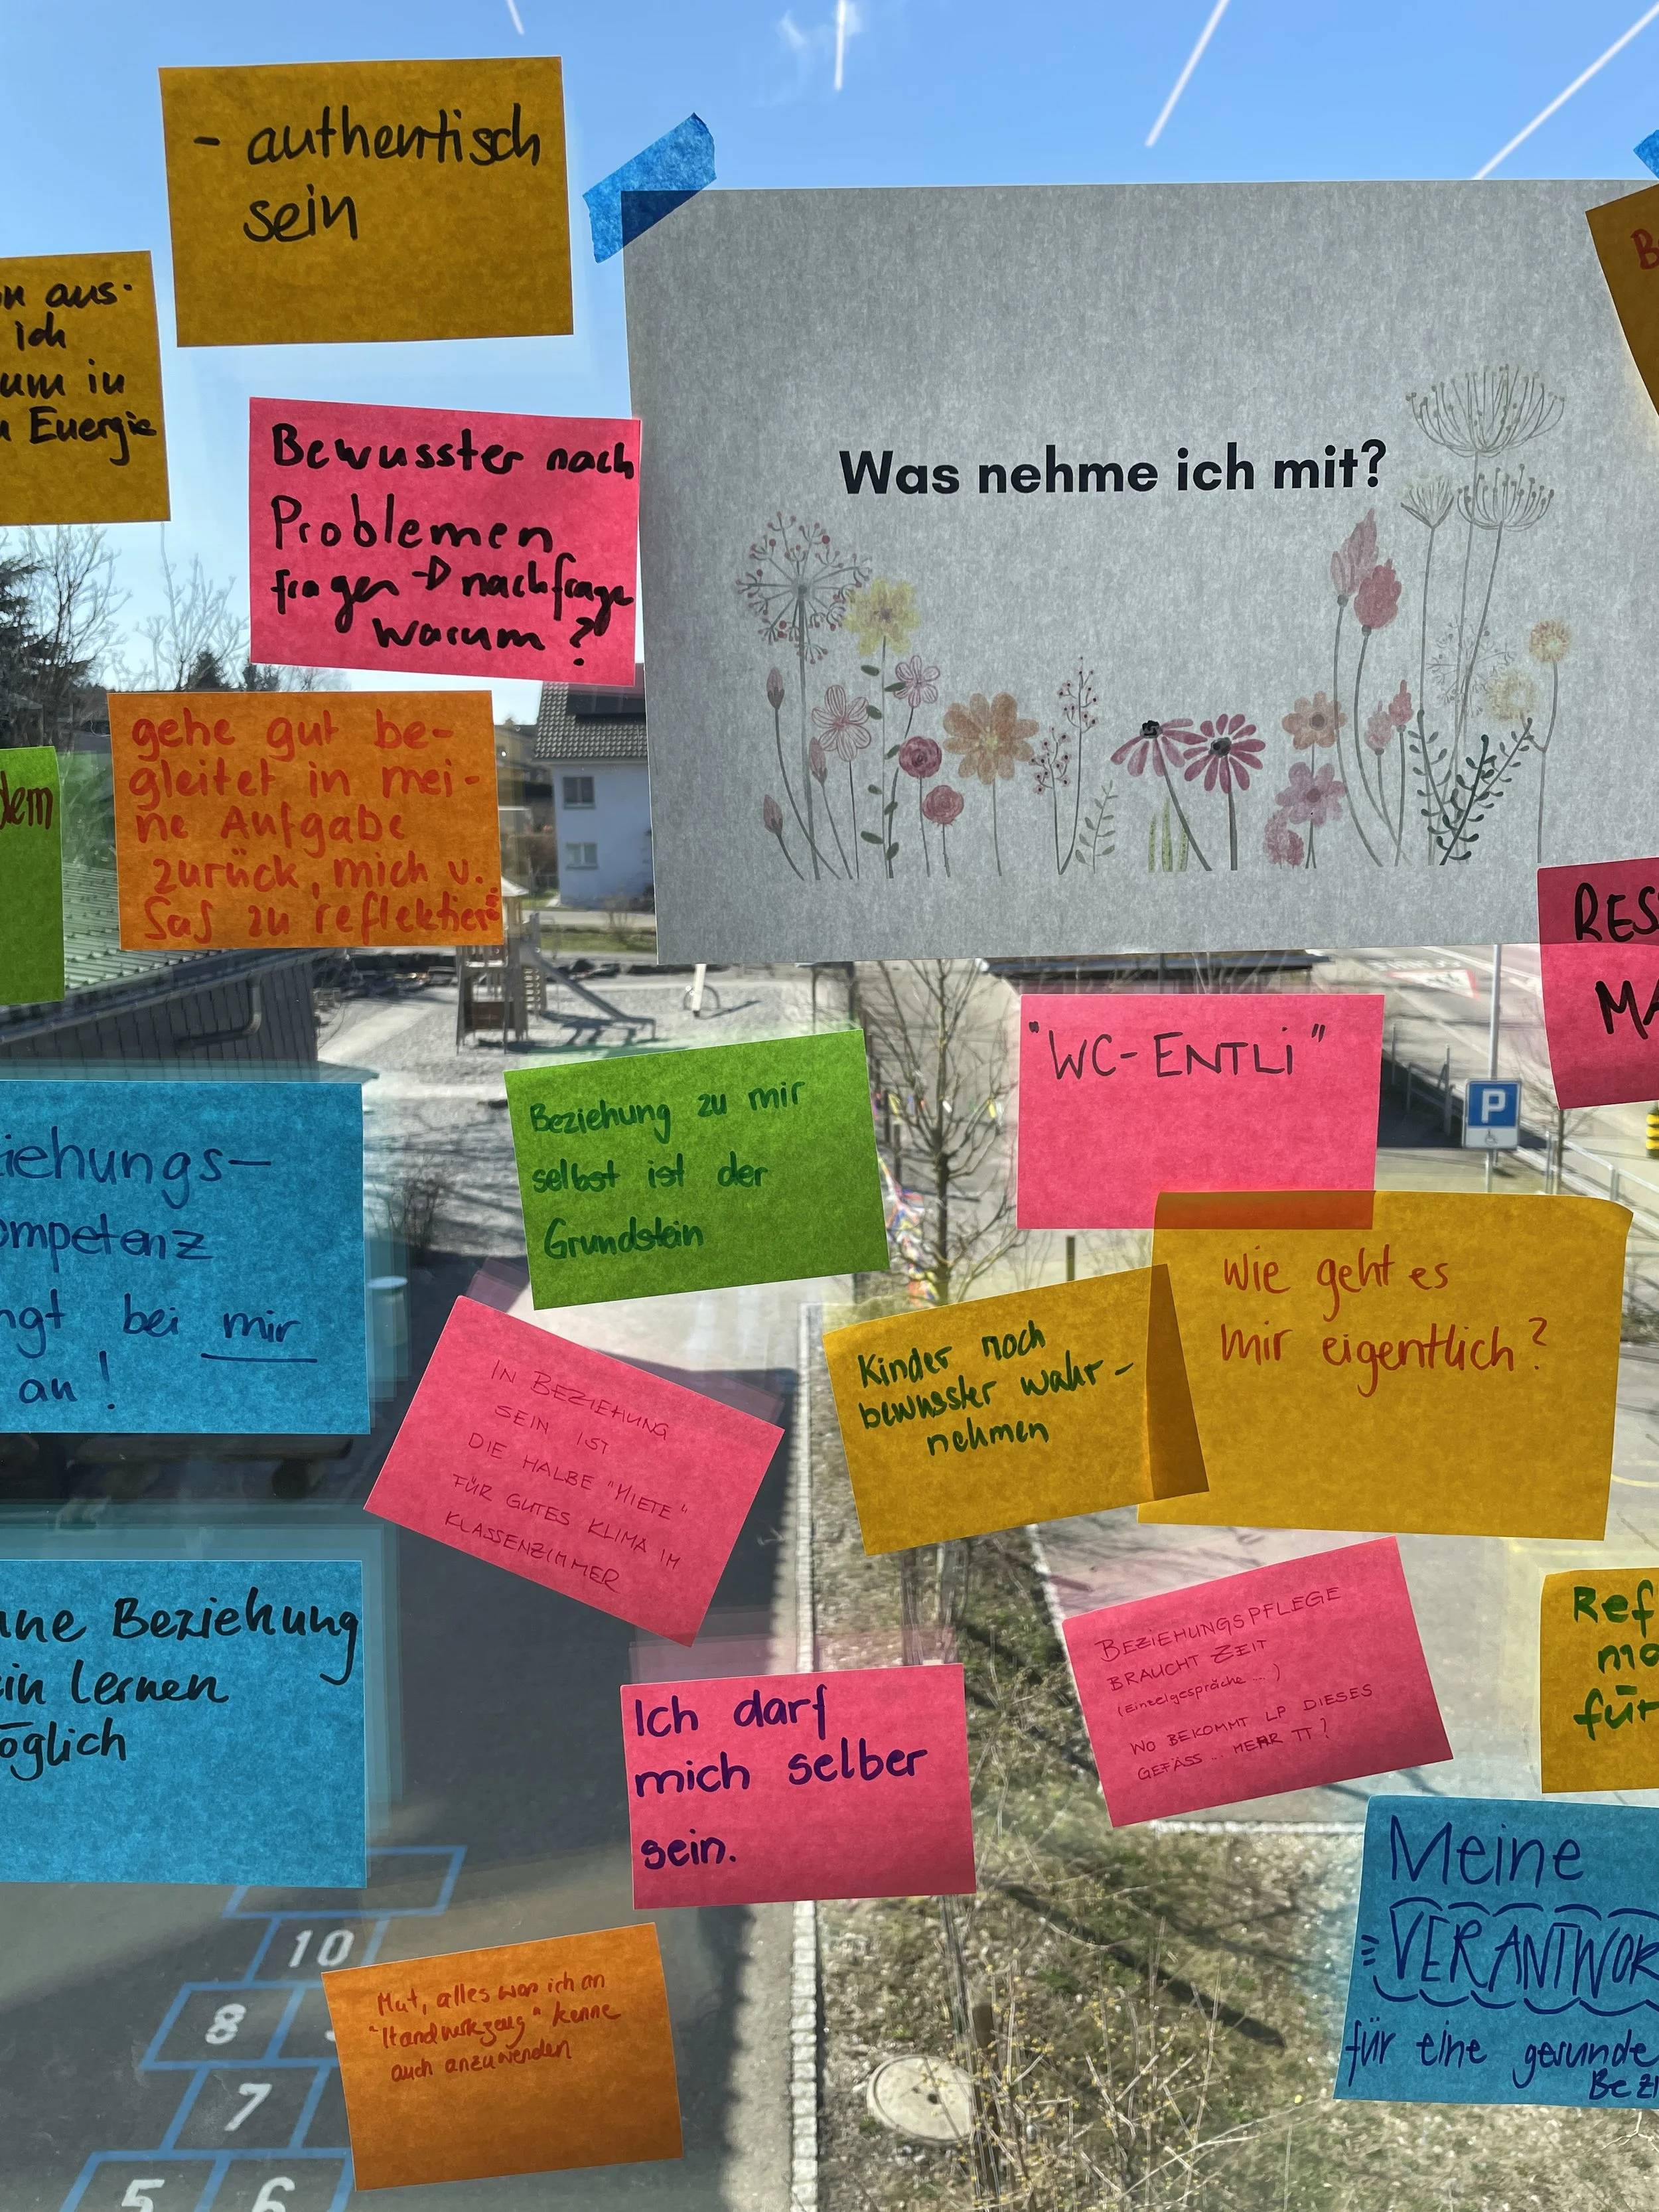 - authentisch
sein
aus-
ich
um in
Energie
Bewusster nach
Problemen
fragen → nachfrage
warum?
Was nehme ich mit?
gehe gut be-
gleitet in mei-
ne Aufgabe
zurück, mich u.
SuS zu reflektier
dem
RES
MA
"WC-ENTLi"
Beziehung zu mir
selbst ist der
Grundstein
iehungs-
ompetenz
ngt bei mir
an!
wie geht es
mir eigentlich?
Kinder noch
bewusster wahr-
nehmen
IN BEZIEHUNG
SEIN IST
DIE HALBE "MIETE"
FÜR GUTES KLIMA IM
KLASSENZIMMER
ne Beziehung
ein lernen
öglich
BEZIEHUNGSPFLEGE
BRAUCHT ZEIT
(Einzelgespräche ...)
WO BEKOMMT LP DIESES
GEFÄSS ... MEHR TT?
Ref
mo
für
Ich darf
mich selber
sein.
Meine
VERANTWOR
für eine gesunde
Bezi
Mut, alles was ich an
"Handwerkzeug" kenne
auch anzuwenden
P
10
8
7
5 6